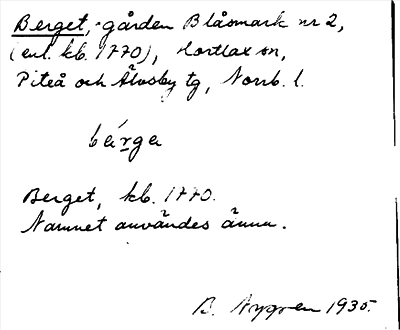 Berget, gården Blåsmark nr 2,
(enl. kb. 1770), Hortlax sn,
Piteå och Älvsby tg, Norrb. l.
bárga
Berget, kb. 1770.
Namnet användes ännu.
B. Nygren 1935.